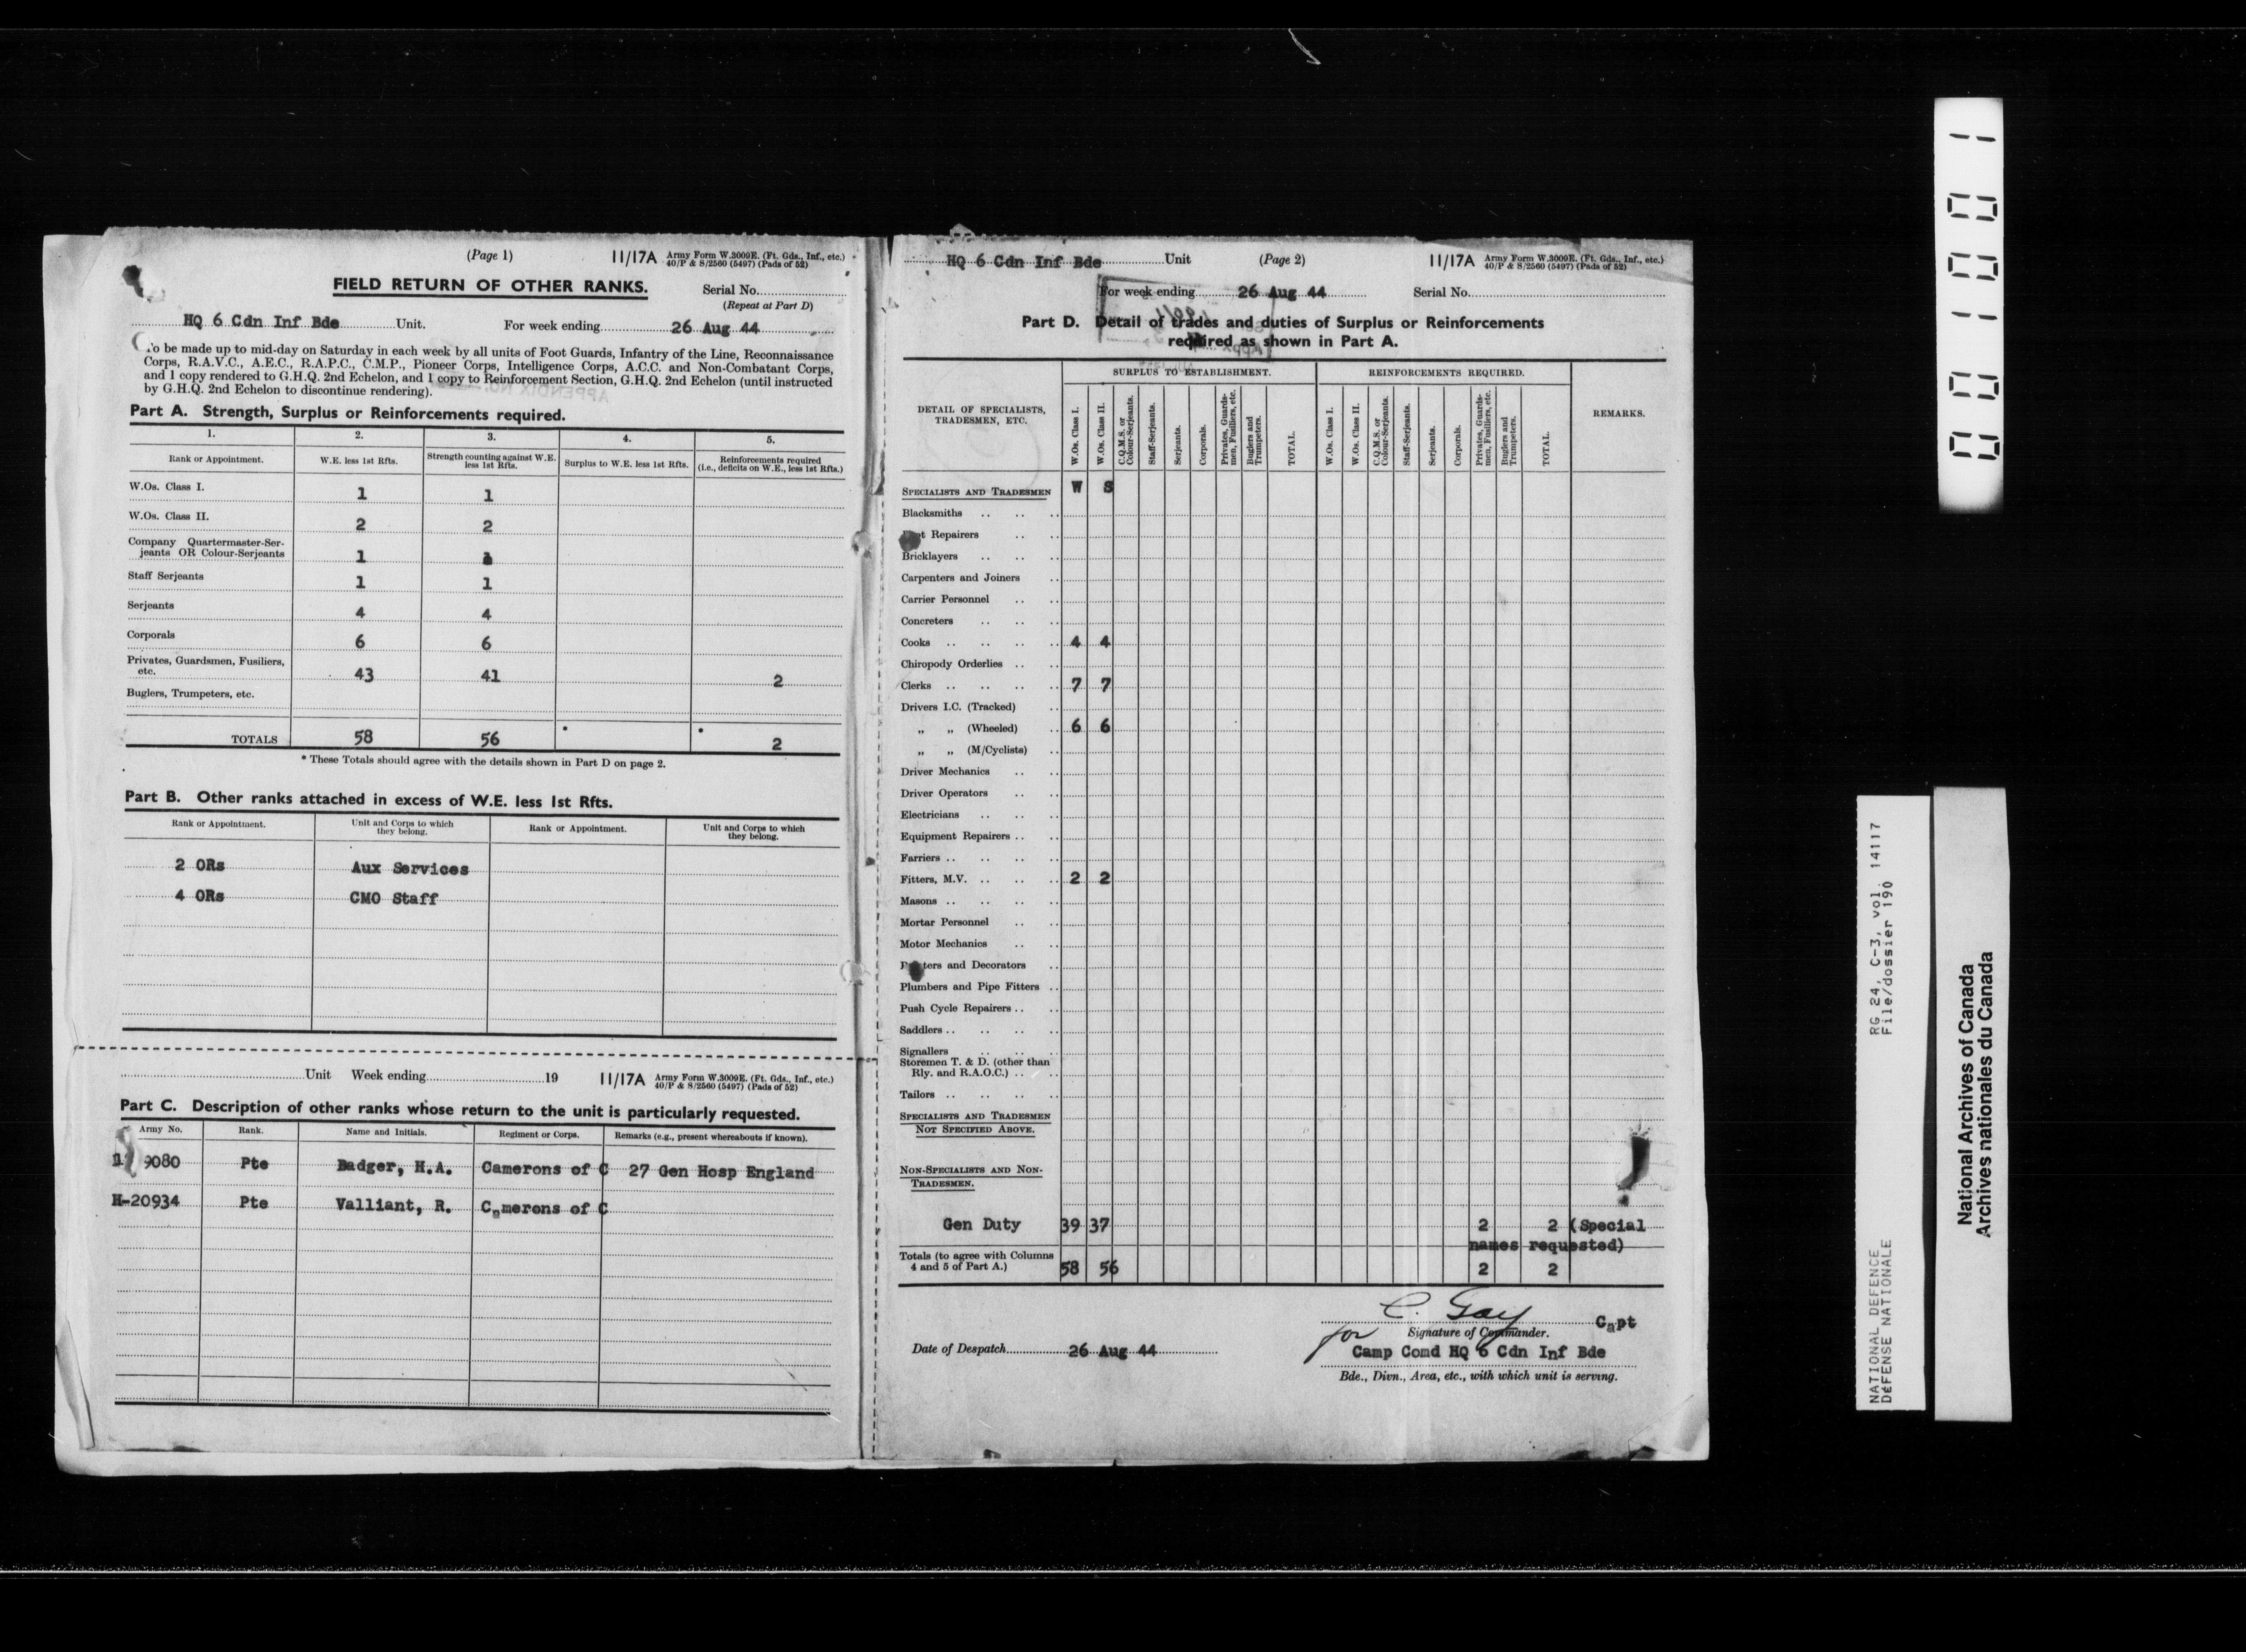 (Page 1) 11/17A Army Form W.3009E. (Ft. Gds., Inf., etc.)
40/P & S/2560 (5497) (Pads of 52)
FIELD RETURN OF OTHER RANKS. Serial No.
(Repeat at Part D)
HQ 6 Cdn Inf Bde Unit. For week ending 26 Aug 44
To be made up to mid-day on Saturday in each week by all units of Foot Guards, Infantry of the Line, Reconnaissance
Corps, R.A.V.C., A.E.C., R.A.P.C., C.M.P., Pioneer Corps, Intelligence Corps, A.C.C. and Non-Combatant Corps,
and 1 copy rendered to G.H.Q. 2nd Echelon, and 1 copy to Reinforcement Section, G.H.Q. 2nd Echelon (until instructed
by G.H.Q. 2nd Echelon to discontinue rendering).
Part A. Strength, Surplus or Reinforcements required.
1. 2. 3. 4. 5.
Rank or Appointment. W.E. less 1st Rfts. Strength counting against W.E. less 1st Rfts. Surplus to W.E. less 1st Rfts. Reinforcements required (i.e., deficits on W.E., less 1st Rfts.)
W.Os. Class I. 1 1
W.Os. Class II. 2 2
Company Quartermaster-Ser-
jeants OR Colour-Serjeants 1
Staff Serjeants 1 1
Serjeants 4 4
Corporals 6 6
Privates, Guardsmen, Fusiliers,
etc. 43 41 2
Buglers, Trumpeters, etc.
TOTALS 58 56 * * 2
* These Totals should agree with the details shown in Part D on page 2.
Part B. Other ranks attached in excess of W.E. less 1st Rfts.
Rank or Appointment. Unit and Corps to which they belong. Rank or Appointment. Unit and Corps to which they belong.
2 ORs Aux Services
4 ORs CMO Staff
Unit Week ending 19 11/17A Army Form W.3009E. (Ft. Gds., Inf., etc.)
40/P & S/2560 (5497) (Pads of 52)
Part C. Description of other ranks whose return to the unit is particularly requested.
Army No. Rank. Name and Initials. Regiment or Corps. Remarks (e.g., present whereabouts if known).
9080 Pte Badger, H.A. Camerons of C 27 Gen Hosp England
H-20934 Pte Valliant, R. Camerons of C
HQ 6 Cdn Inf Bde Unit (Page 2) 11/17A Army Form W.3009E. (Ft. Gds., Inf., etc.)
40/P & S/2560 (5497) (Pads of 52)
For week ending 26 Aug 44 Serial No.
Part D. Detail of trades and duties of Surplus or Reinforcements
required as shown in Part A.
DETAIL OF SPECIALISTS, TRADESMEN, ETC. SURPLUS TO ESTABLISHMENT. REINFORCEMENTS REQUIRED. REMARKS.
W.Os. Class I. W.Os. Class II. C.Q.M.S. or Colour-Serjeants. Staff-Serjeants. Serjeants. Corporals. Privates, Guardsmen, Fusiliers, etc. Buglers and Trumpeters. TOTAL. W.Os. Class I. W.Os. Class II. C.Q.M.S. or Colour-Serjeants. Staff-Serjeants. Serjeants. Corporals. Privates, Guardsmen, Fusiliers, etc. Buglers and Trumpeters. TOTAL.
SPECIALISTS AND TRADESMEN W S
Blacksmiths
Repairers
Bricklayers
Carpenters and Joiners
Carrier Personnel
Concreters
Cooks 4 4
Chiropody Orderlies
Clerks 7 7
Drivers I.C. (Tracked)
" " (Wheeled) 6 6
" " (M/Cyclists)
Driver Mechanics
Driver Operators
Electricians
Equipment Repairers
Farriers
Fitters, M.V. 2 2
Masons
Mortar Personnel
Motor Mechanics
Painters and Decorators
Plumbers and Pipe Fitters
Push Cycle Repairers
Saddlers
Signallers
Storemen T. & D. (other than
Rly. and R.A.O.C.)
Tailors
SPECIALISTS AND TRADESMEN
NOT SPECIFIED ABOVE.
NON-SPECIALISTS AND NON-
TRADESMEN.
Gen Duty 39 37 2 2 (Special
names requested)
Totals (to agree with Columns
4 and 5 of Part A.) 58 56 2 2
C. Gay Capt
for Signature of Commander.
Date of Despatch 26 Aug 44 Camp Comd HQ 6 Cdn Inf Bde
Bde., Divn., Area, etc., with which unit is serving.
NATIONAL DEFENCE RG 24, C-3, vol. 14117
DÉFENSE NATIONALE File/dossier 190
National Archives of Canada
Archives nationales du Canada